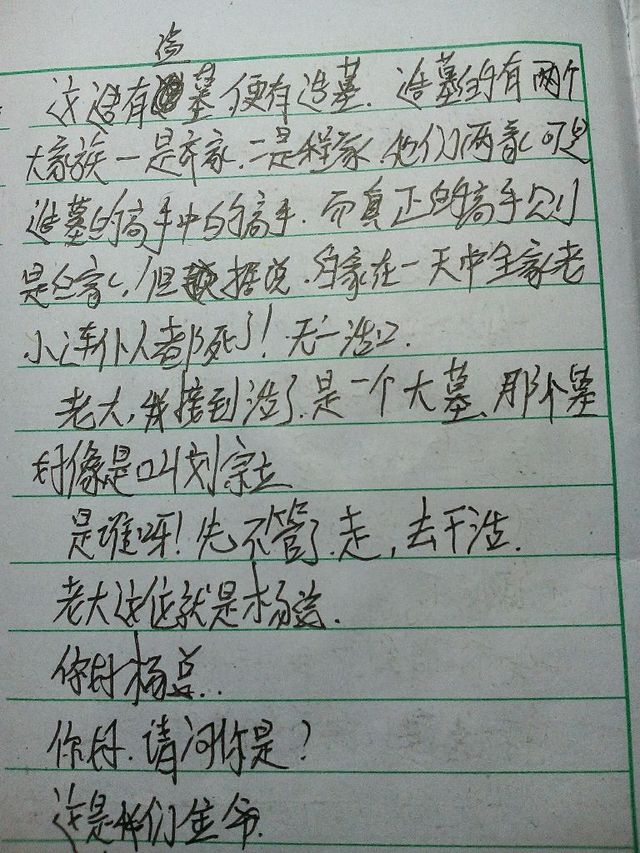 盗
这话有墓便有造墓.造墓的有两个
大家族一是齐家.二是程家.他们两家可是
造墓的高手中的高手.而真正的高手则
是白家,但据说.白家在一天中全家老
小连仆人都死了!无一活口.
老大,我接到活了.是一个大墓,那个墓
好像是叫刘宗
是谁呀!先不管了.走,去干活.
老大这位就是杨总.
你好杨总..
你好.请问你是?
这是我们生命.